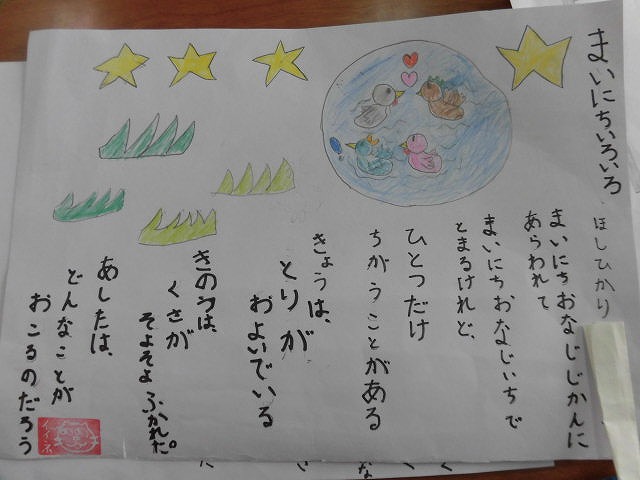 まいにちいろいろ
ほしひかり
まいにちおなじじかんに
あらわれて
まいにちおなじいちで
とまるけれど、
ひとつだけ
ちがうことがある
きょうは、
とりが
およいでいる
きのうは、
くさが
そよそよふかれた。
あしたは、
どんなことが
おこるのだろう
イイネ